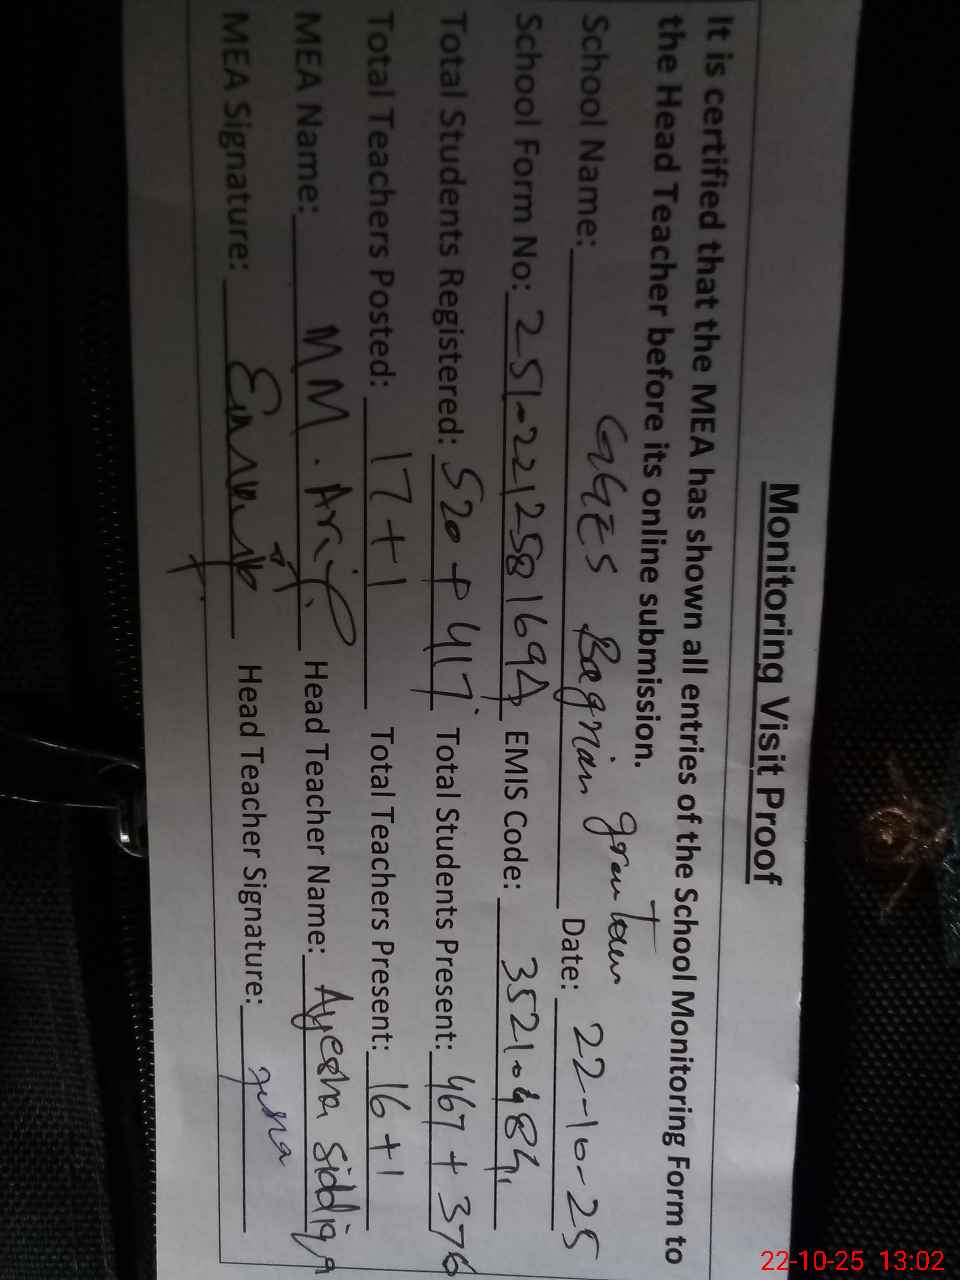 Monitoring Visit Proof
It is certified that the MEA has shown all entries of the School Monitoring Form to
the Head Teacher before its online submission.
School Name: GGES Bagrian gran Town Date: 22-10-25
School Form No: 251-2212581694 EMIS Code: 35210484
Total Students Registered: 520 + 417 Total Students Present: 467 + 376
Total Teachers Posted: 17 + 1 Total Teachers Present: 16 + 1
MEA Name: MM. Arif Head Teacher Name: Ayesha Siddiqa
MEA Signature: Head Teacher Signature:
22-10-25 13:02